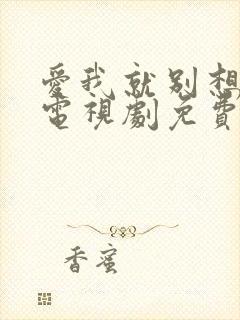 愛我就別想
電視劇免費
香蜜